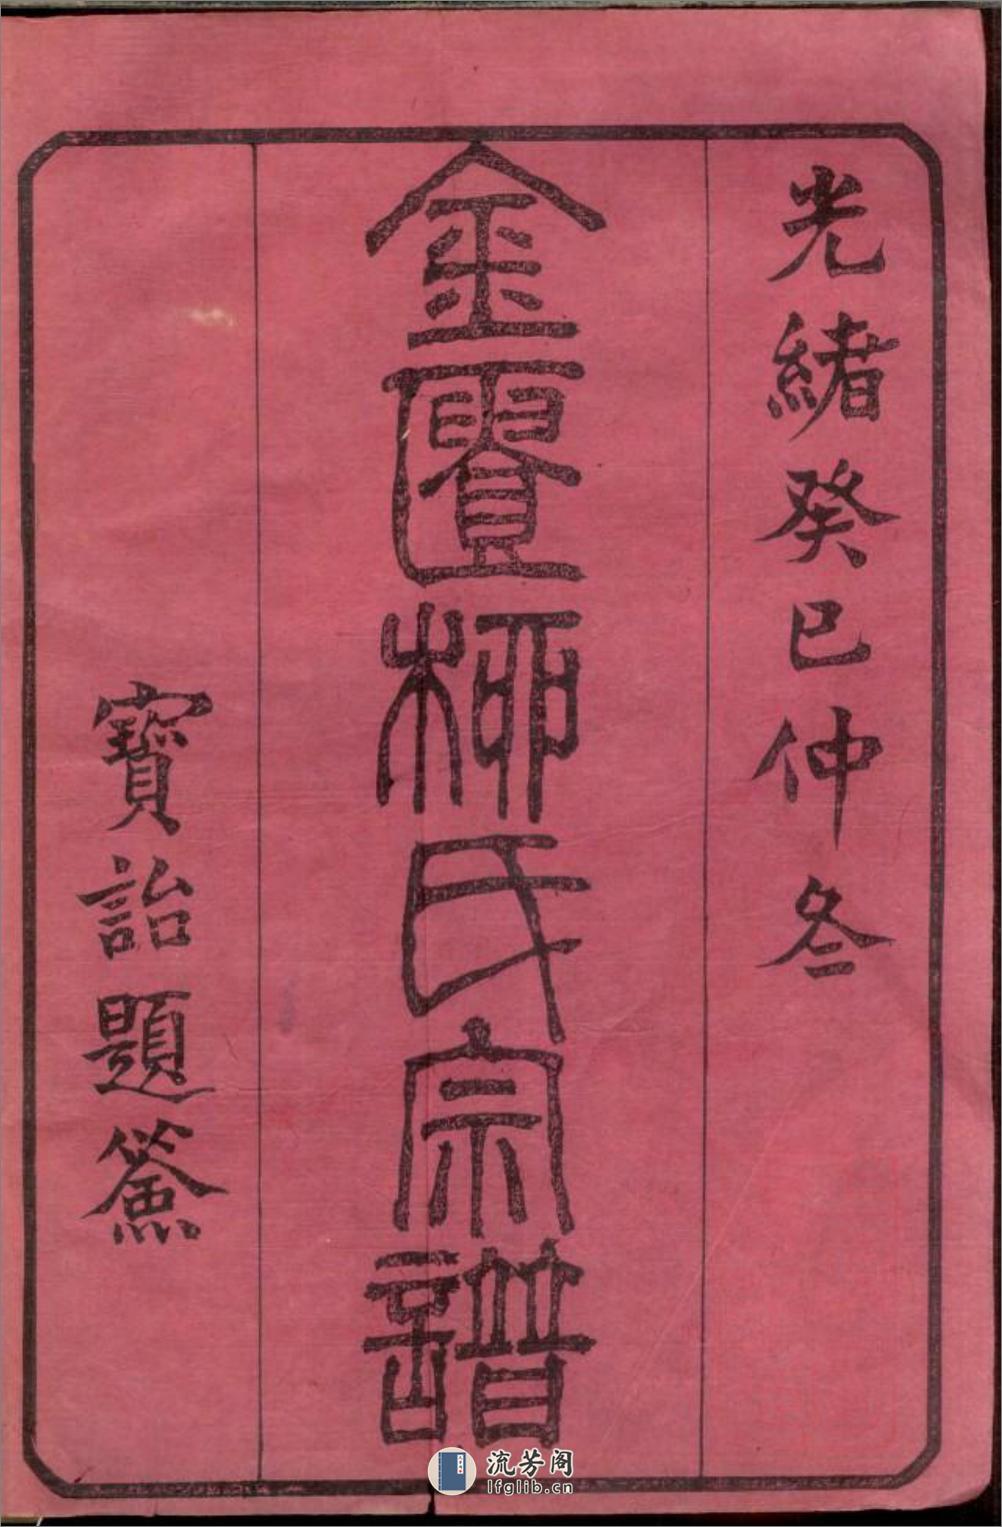 光緒癸巳仲冬
金匱柳氏宗譜
寶詒題簽
流芳阁
lfglib.cn